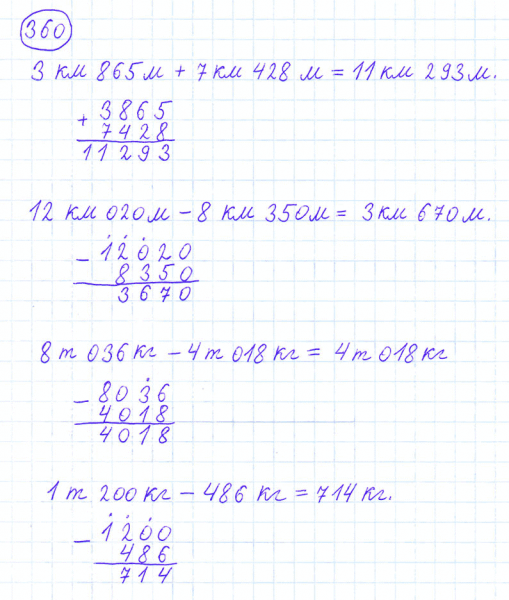 360
3 км 865 м + 7 км 428 м = 11 км 293 м.
+ 3865
7428
11293
12 км 020 м – 8 км 350 м = 3 км 670 м.
– 12020
8350
3670
8 т 036 кг – 4 т 018 кг = 4 т 018 кг
– 8036
4018
4018
1 т 200 кг – 486 кг = 714 кг.
– 1200
486
714